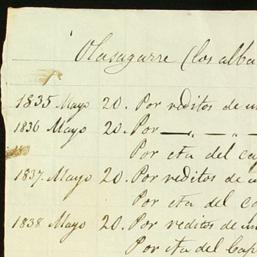 Olasagarre (los alba
1835 Mayo 20. Por reditos de un
1836 Mayo 20. Por — „ — „ —
Por cta del ca
1837. Mayo 20. Por reditos de u
Por cta del ca
1838 Mayo 20. Por reditos de un
Por cta del Cap